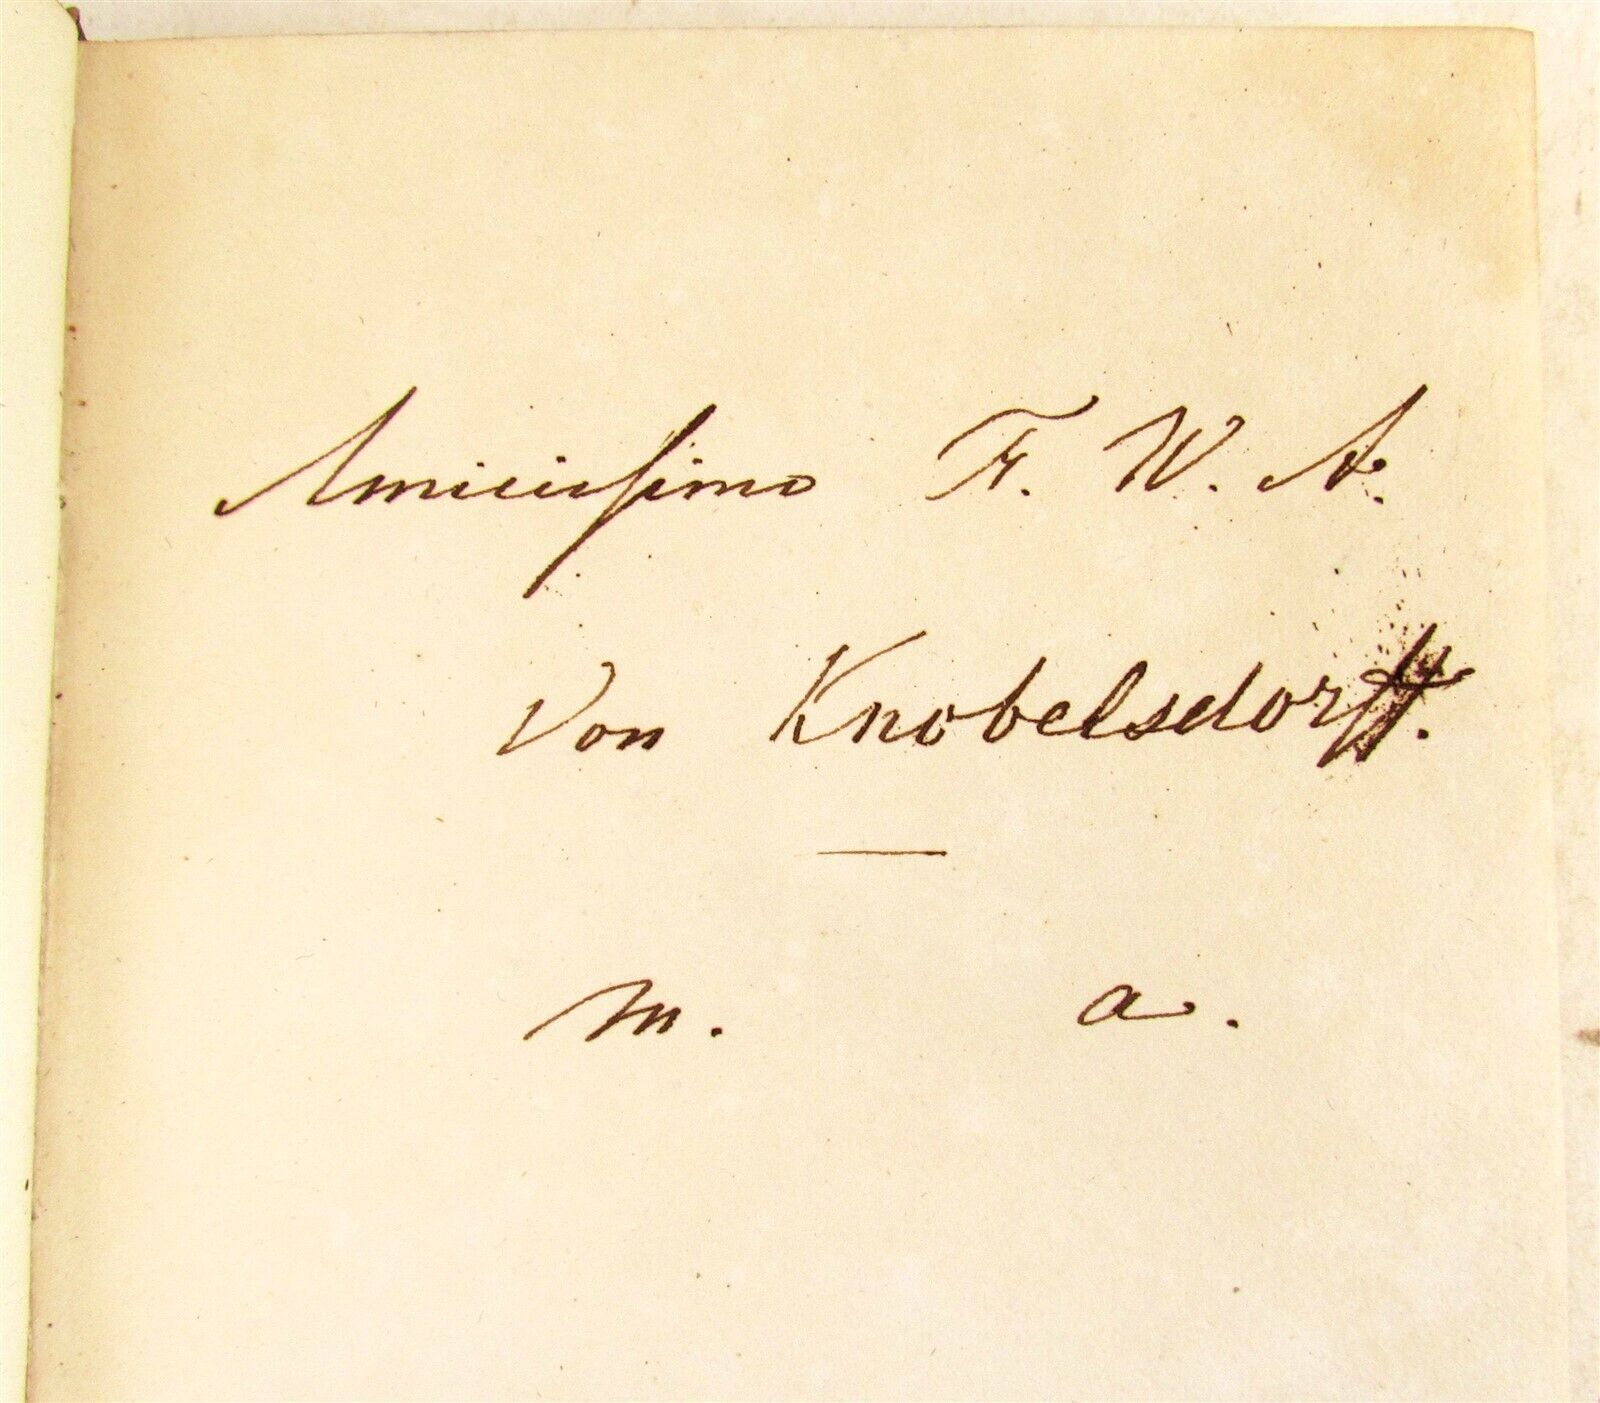 Amicissimo F. W. A.
von Knobelsdorff.
m. a.